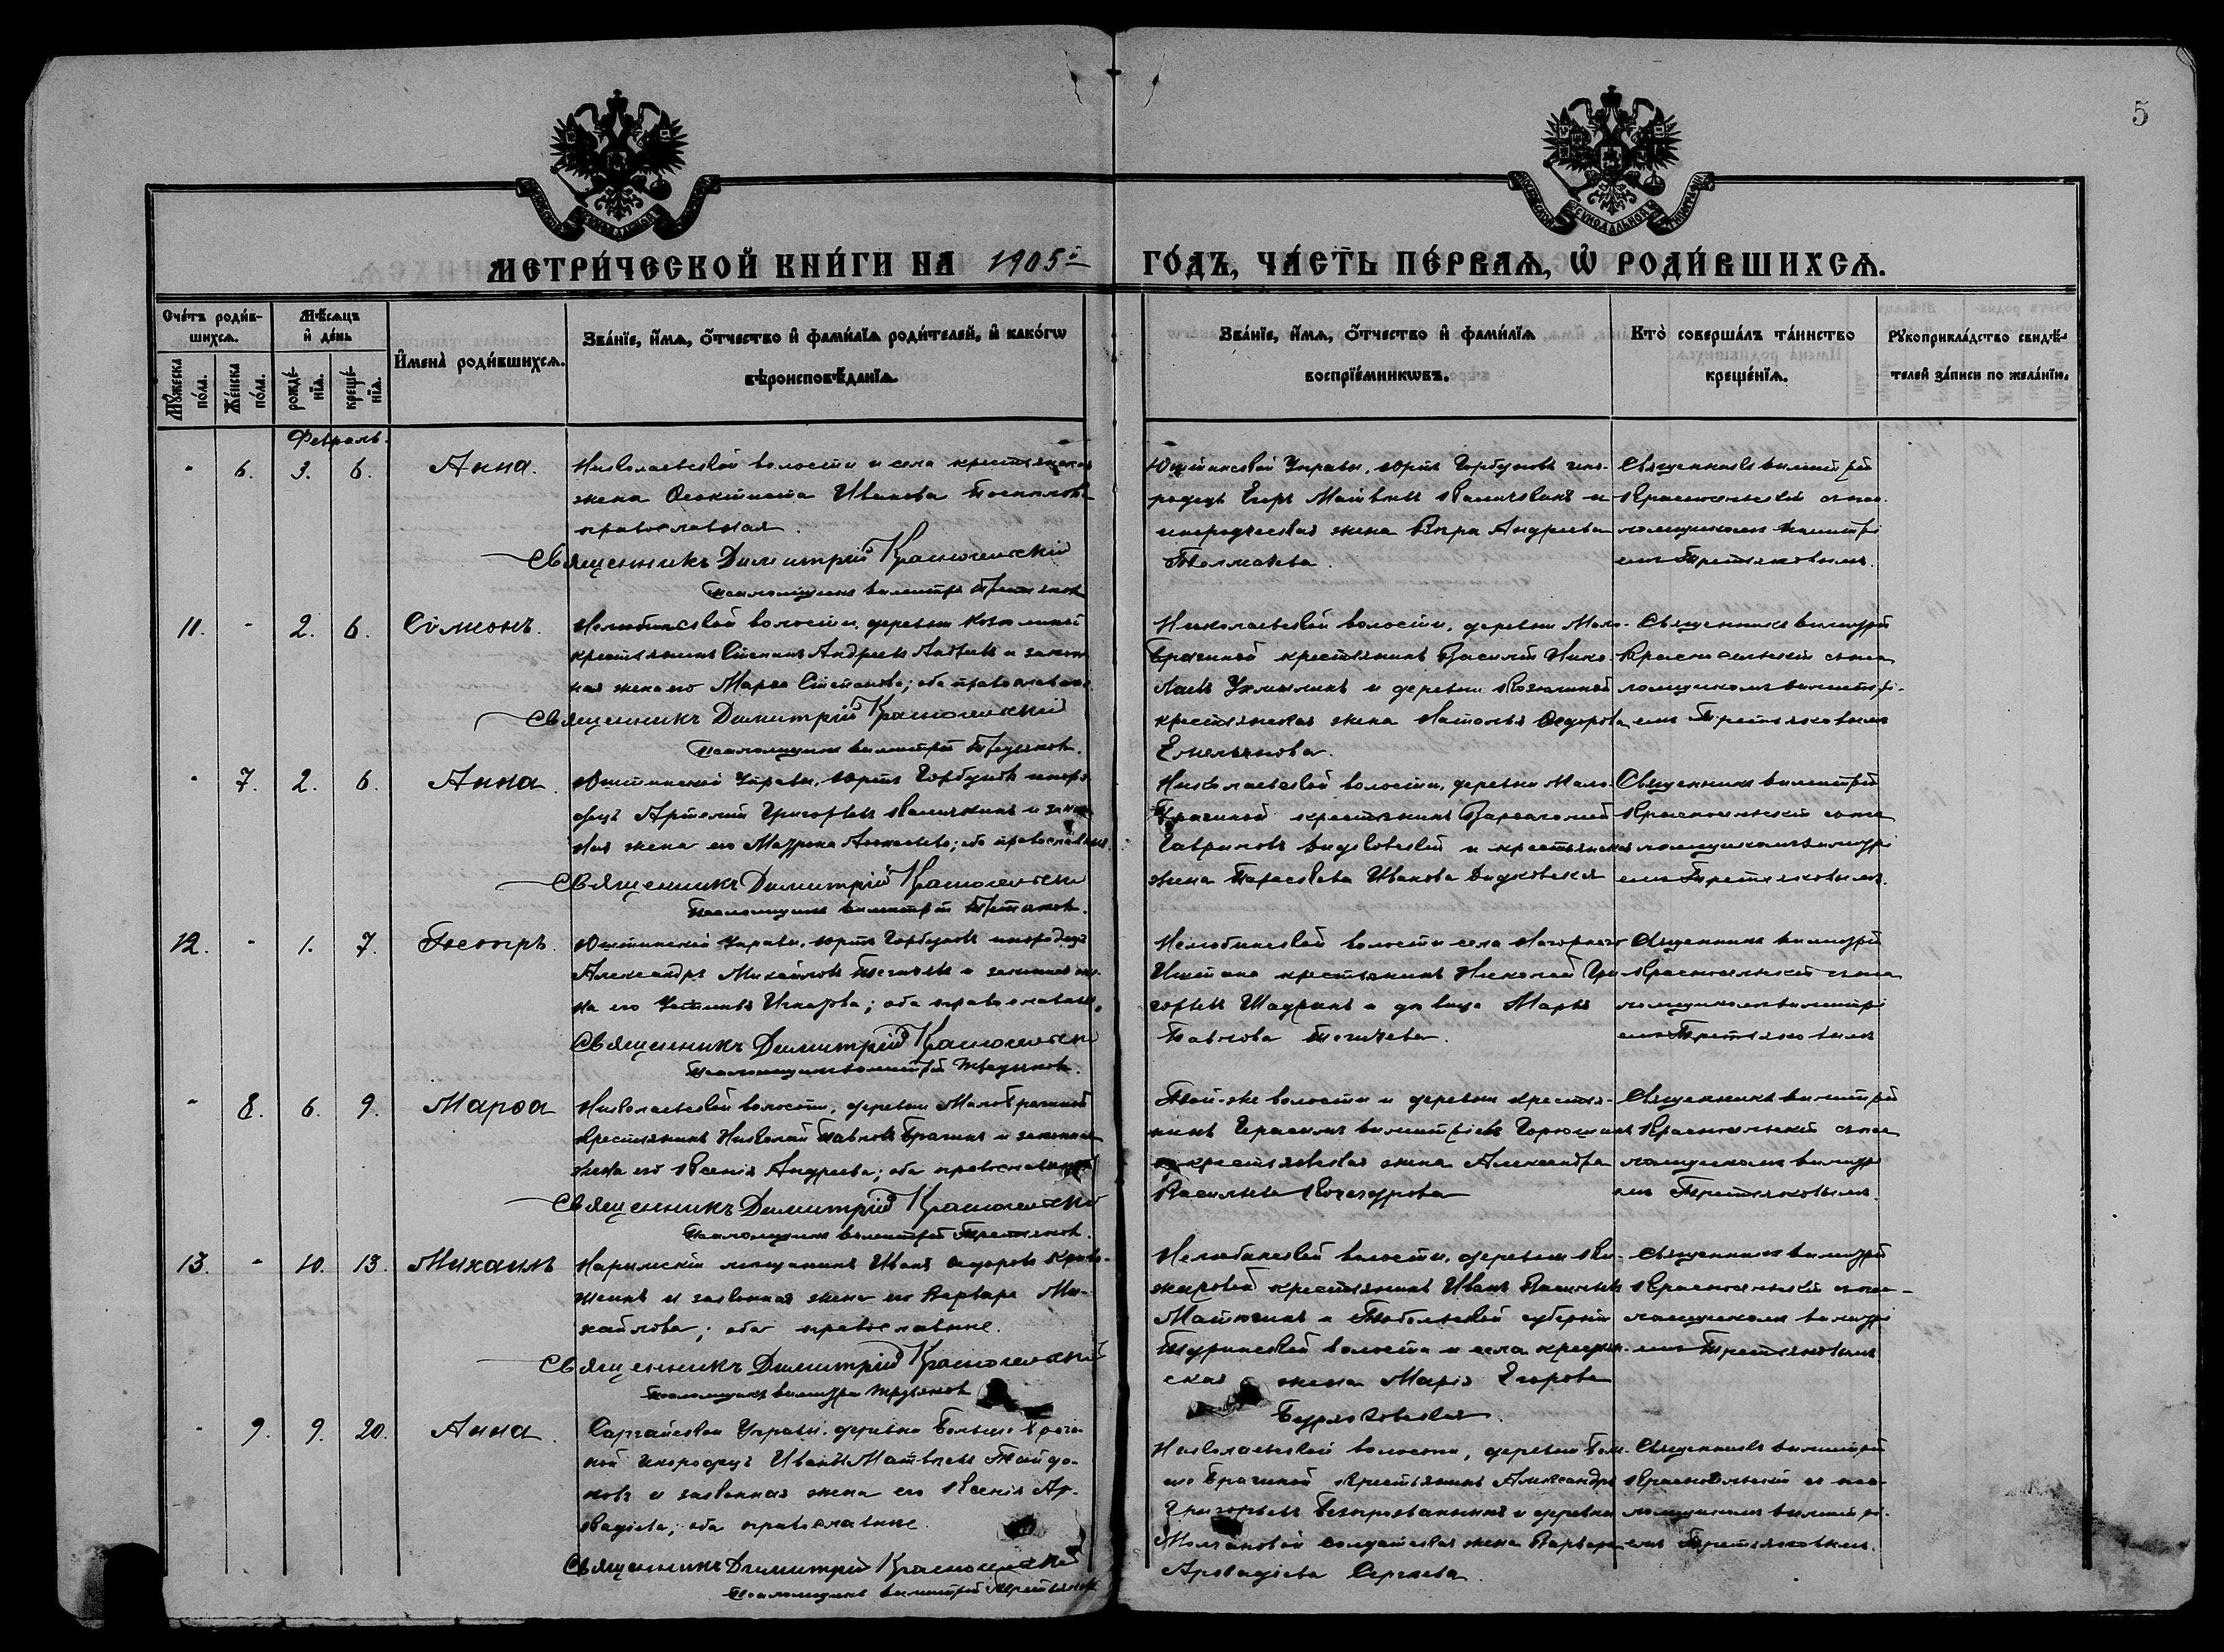 5
МЕТРИ́ЧЕСКОЙ КНИ́ГИ НА 1905й ГО́ДЪ, ЧА́СТЬ ПЕ́РВАѦ, Ѡ҆ РОДИ́ВШИХСѦ.
Сче́тъ роди́в-
шихсѧ.
Мꙋ́жеска по́ла.
Же́нска по́ла.
Мѣ́сѧцъ
и҆ де́нь
рожде́-
нїѧ.
креще́-
нїѧ.
И҆мена̀ роди́вшихсѧ.
Зва́нїе, и҆́мѧ, ѻ҆́тчество и҆ фами́лїѧ роди́телей, и҆ како́гѡ
вѣроисповѣ́данїѧ.
Зва́нїе, и҆́мѧ, ѻ҆́тчество и҆ фами́лїѧ
воспрїе́мникѡвъ.
Кто̀ соверша́лъ та́инство
креще́нїѧ.
Рꙋкоприкла́дство свидѣ́-
телей за́писи по жела́нїю.
Февраль.
- 6. 3. 6. Анна.
Николаевской волости и села крестьянская
жена Иванова
православная.
Священникъ Димитрій Красносельскій
Псаломщикъ Димитрій Третьяковъ
Управы, юртъ Горбуновъ ино-
родецъ Егоръ и
инородческая жена Вѣра Андреева
Толмачева.
Священникъ Димитрій
Красносельскій съ пса-
ломщикомъ Димитрі-
емъ Третьяковымъ.
11. - 2. 6. Сѵмеонъ.
Нелюбинской волости, деревни
крестьянинъ Андреевъ и закон-
ная жена его Марѳа Степанова; оба православные.
Священникъ Димитрій Красносельскій
Псаломщикъ Димитрій Третьяковъ.
Николаевской волости, деревни Мало-
Брагиной крестьянинъ Василій Нико-
лаевъ и деревни
крестьянская жена Наталья Ѳедорова
Емельянова.
Священникъ Димитрій
Красносельскій съ пса-
ломщикомъ Димитрі-
емъ Третьяковымъ
- 7. 2. 6. Анна.
Управы, юртъ Горбуновъ иноро-
децъ Артемій Григорьевъ и закон-
ная жена его Матрона; оба православные.
Священникъ Димитрій Красносельскій
Псаломщикъ Димитрій Третьяковъ.
Николаевской волости, деревни Мало-
Брагиной крестьянинъ Варѳоломей
Гавриловъ Видковскій и крестьянская
жена Параскева Иванова
Священникъ Димитрій
Красносельскій съ пса-
ломщикомъ Димитрі-
емъ Третьяковымъ.
12. - 1. 7. Петръ.
Управы, юртъ Горбуновъ инородецъ
Александръ Михайловъ и законная же-
на его; оба православные.
Священникъ Димитрій Красносельскій
Псаломщикъ Димитрій Третьяковъ.
Нелюбинской волости села Нагорнаго
Иштана крестьянинъ Николай Гри-
горьевъ Шадринъ и дѣвица Марья
Павлова
Священникъ Димитрій
Красносельскій съ пса-
ломщикомъ Димитрі-
емъ Третьяковымъ
- 8. 6. 9. Марѳа
Николаевской волости, деревни Мало Брагиной
крестьянинъ Николай Павловъ Брагинъ и законная
жена его Ксенія Андреева; оба православные
Священникъ Димитрій Красносельскій
Псаломщикъ Димитрій Третьяковъ.
Той-же волости и деревни крестья-
нинъ Герасимъ Димитріевъ
и крестьянская жена Александра
Васильева Кочегурова
Священникъ Димитрій
Красносельскій съ пса-
ломщикомъ Димитрі-
емъ Третьяковымъ.
13. - 10. 13. Михаилъ
Нарымскій мѣщанинъ Иванъ Ѳедоровъ
и законная жена его Варвара Ми-
хайлова; оба православные.
Священникъ Димитрій Красносельскій
Псаломщикъ Димитрій Третьяковъ
Нелюбинской волости, деревни
крестьянинъ Иванъ Васильевъ
и Тобольской губерніи
волости и села крестьян-
ская жена Марія Егорова
Священникъ Димитрій
Красносельскій съ пса-
ломщикомъ Димитрі-
емъ Третьяковымъ
- 9. 9. 20. Анна.
Управы. деревни Больше Браги-
ной инородецъ Иванъ Матвѣевъ
и законная жена его Ксенія Ар-
кадіева; оба православные.
Священникъ Димитрій Красносельскій
Псаломщикъ Димитрій Третьяковъ
Николаевской волости, деревни Боль-
ше Брагиной крестьянинъ Александръ
Григорьевъ и деревни
Молчановой солдатская жена Варвара
Аркадіева Сергѣева.
Священникъ Димитрій
Красносельскій съ пса-
ломщикомъ Димитрі-
емъ Третьяковымъ.